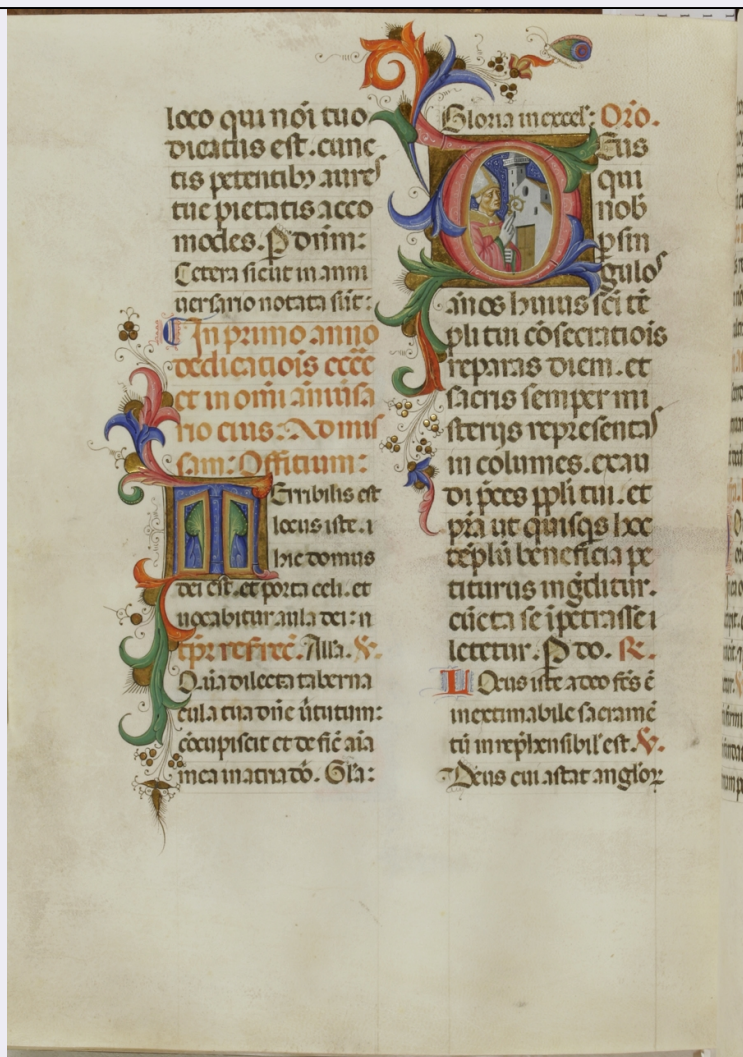 loco qui noi tuo
dicatus est. cunc
tis petentiby aures
tue pietatis acco
modes. P dnm:
Cetera sicut in anni
uersario notata sut:
In primo anno
dedicatiois eccẽ
et in omi aniuisa
rio eius: Ad mis
sam: Offitium:
TErribilis est
locus iste. i
hic domus
dei est. et porta celi. et
uocabitur aula dei: ⁊
tpr resrec. Alla. V.
Quã dilecta taberna
cula tua dñe uirtutum:
cõcupiscit et defic aia
mea in atria dõ. Gla:
Gloria in excel: Oro.
DEus
qui
nob
p sin
gulos
annos huius sci tẽ
pli tui cõsecratiois
reparas diem. et
sacris semper mi
sterijs representas
in columes. exau
di pces ppli tui. et
pra ut quisqs hoc
teplũ beneficia pe
titurus ingditur.
cũcta se ipetrasse i
letetur. P do. R.
LOcus iste a deo fcs ẽ
inextimabile sacramẽ
tũ inrephensibil est. V.
Deus cui astat anglor